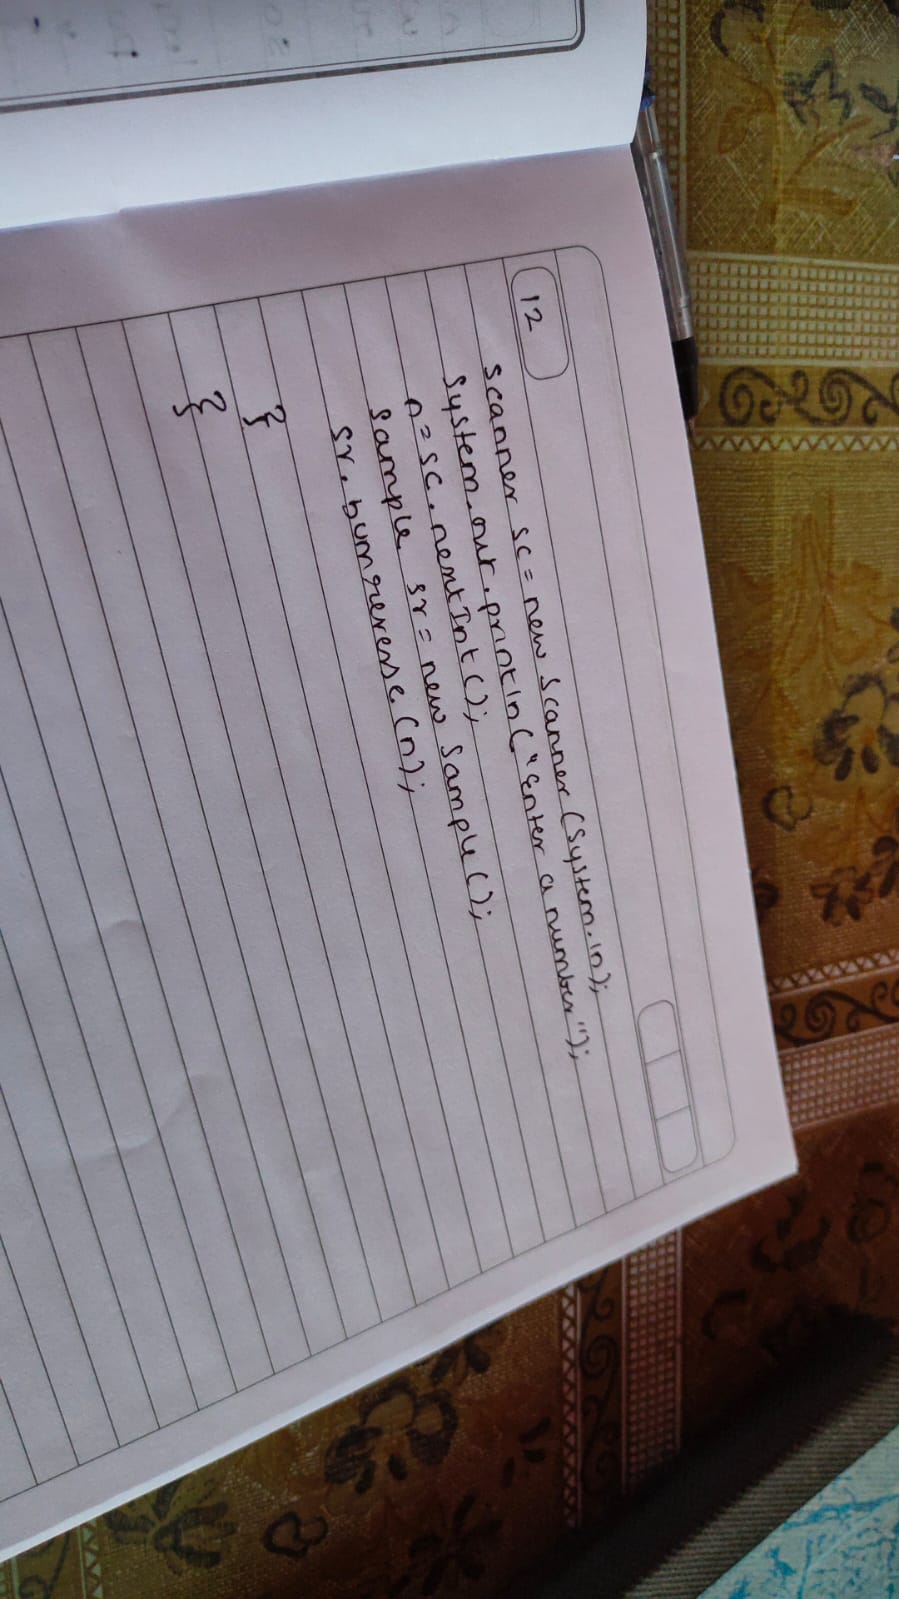 12
Scanner sc = new Scanner (System.in);
System.out.println ("Enter a number");
n = sc.nextInt ();
Sample sr = new Sample ();
sr. (n);
}
}